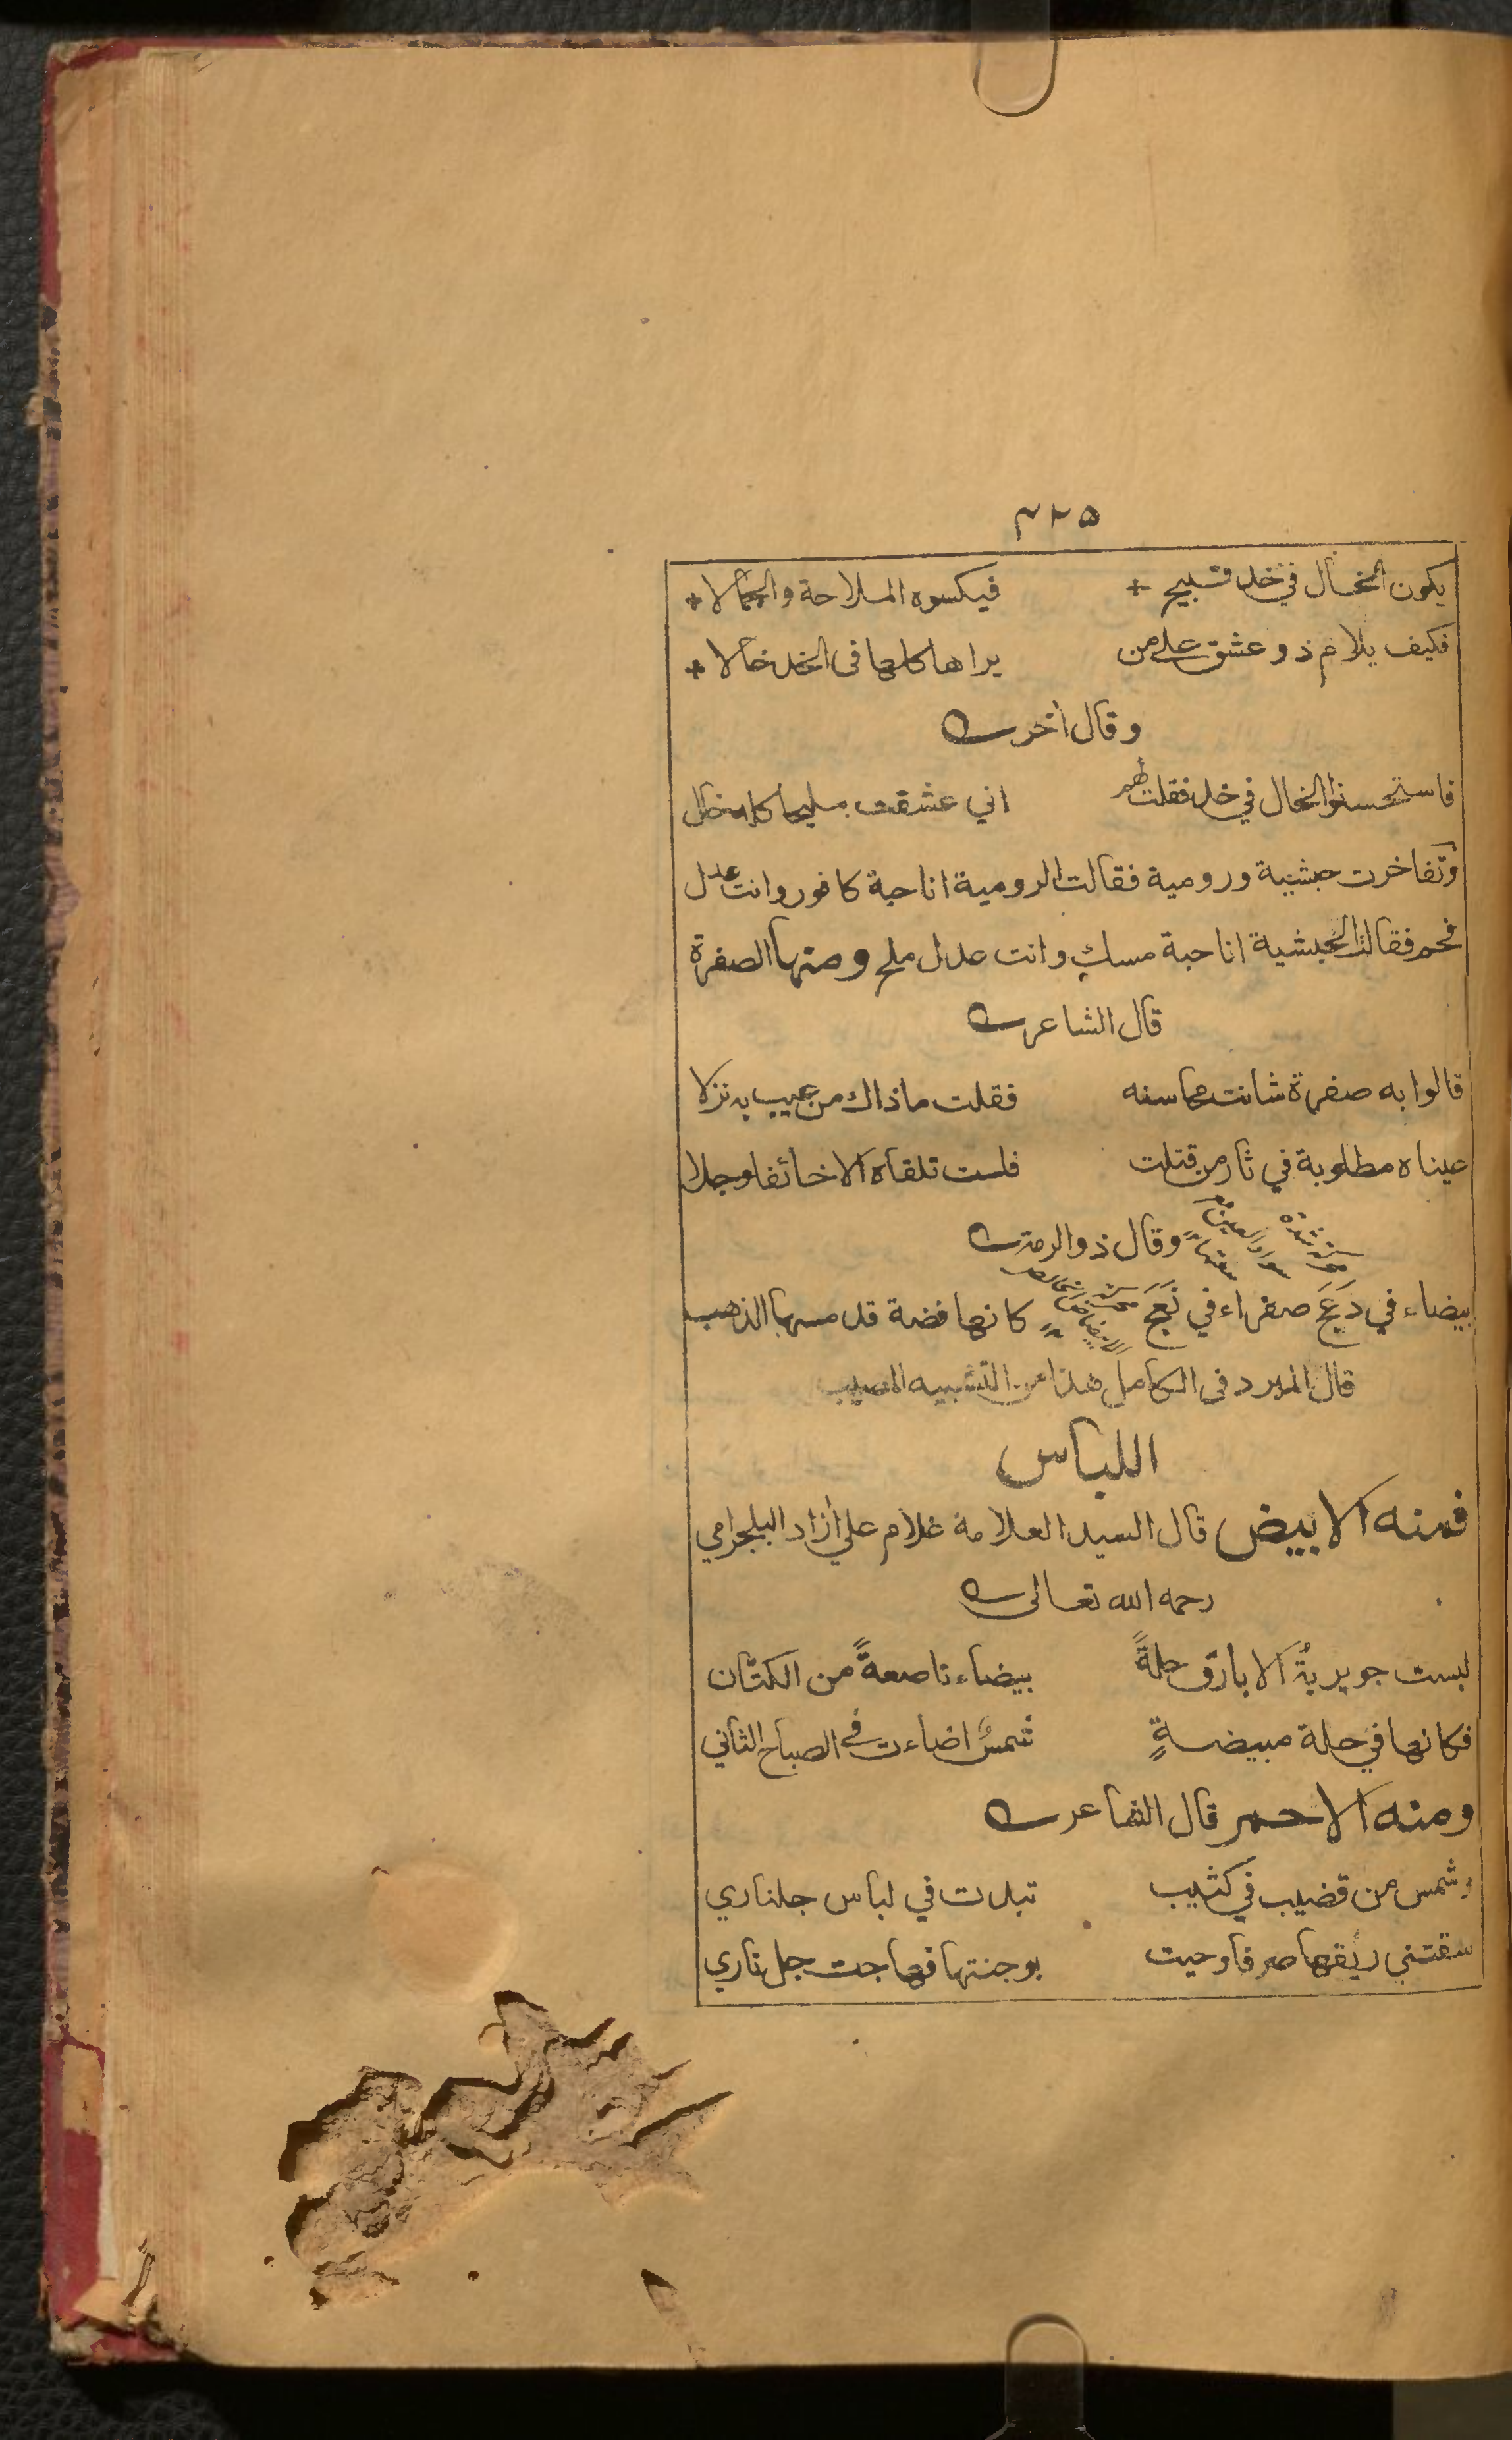 ٣٢٥
يكون الخال في خد قبيح + فيكسوه الملاحة والجمالا +
فكيف يلام ذو عشق على من يراها كلها في الخد خالا +
وقال اخر
فاستحسنوا الخال في خد فقلت لهم اني عشقت مليحا كله خال
وتفاخرت حبشية ورومية فقالت الرومية انا حبة كافور وانت عدل
فحم فقالت الحبشية انا حبة مسك وانت عدل ملح ومنها الصفرة
قال الشاعر
قالوا به صفرة شانت محاسنه فقلت ماذاك من عيب به نزلا
عيناه مطلوبة في ثار من قتلت فلست تلقاه الا خائفا وجلا
وقال ذو الرمة
بيضاء في دَعَجَ صفراء في نَعَجَ كانها فضة قد مسها الذهب
قال المبرد في الكامل هذا من التشبيه المصيب
اللباس
فمنه الابيض قال السيد العلامة غلام علي أزاد البلجرامي
رحمه الله تعالى
لبست جويريةُ الابارق حلةً بيضاء ناصعةً من الكتّان
فكانها في حلة مبيضةٍ شمسٌ اضاءت في الصباح الثاني
ومنه الاحمر قال الشاعر
وشمس من قضيب في كثيب تبدت في لباس جلناري
سقتني ريقها صرفا وحيت بوجنتها فهاجت جل ناري